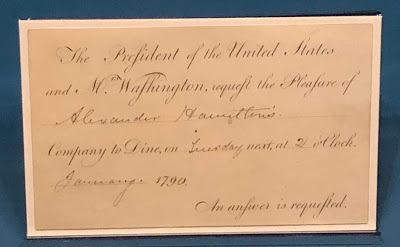 The President of the United States
and Mrs. Washington, request the Pleasure of
Alexander Hamilton's
Company to Dine, on Tuesday next, at 4 o'Clock.
January 1790.
An answer is requested.